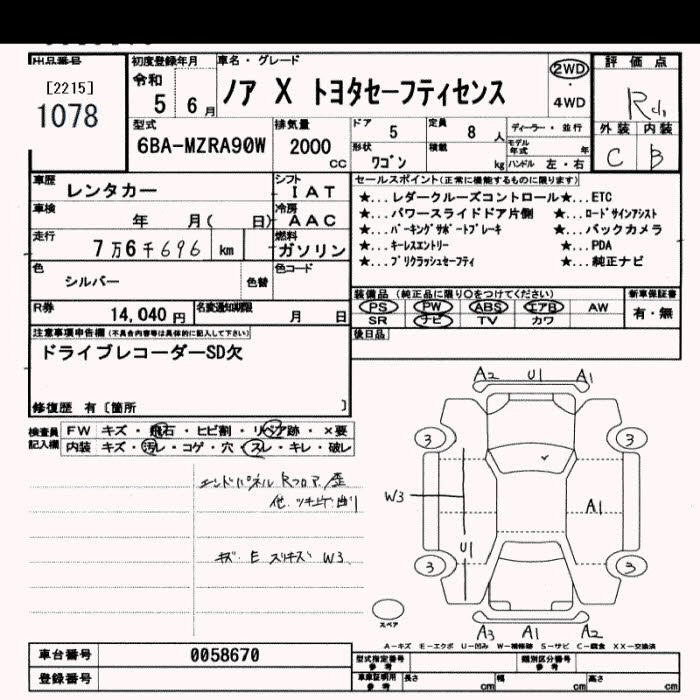 出品番号
[2215]
1078
初度登録年月
令和
5 6月
車名・グレード
ノア X トヨタセーフティセンス
2WD
・
4WD
評価点
外装 内装
C B
型式
6BA-MZRA90W
排気量
2000
CC
ドア 5
定員 8 人
ディーラー・並行
形状 ワゴン
積載 kg
モデル年式 年
ハンドル 左・右
車歴 レンタカー
シフト IAT
車検 年 月( 日)
冷房 AAC
走行 7万6千696 km
燃料 ガソリン
色 シルバー 色替
色コード
R券 14,040円
名変通知期限 月 日
セールスポイント(正常に機能するものに限ります)
★...レーダクルーズコントロール ★...ETC
★...パワースライドドア片側 ★...ロードサインアシスト
★...パーキングサポートブレーキ ★...バックカメラ
★...キーレスエントリー ★...PDA
★...プリクラッシュセーフティ ★...純正ナビ
装備品(純正品に限り○をつけてください)
PS PW ABS エアB AW
SR ナビ TV カワ
新車保証書
有・無
後日品
注意事項申告欄(不具合内容等は具体的に記入して下さい)
ドライブレコーダーSD欠
修復歴 有〔箇所 〕
検査員記入欄
FW キズ・飛石・ヒビ割・リペア跡・×要
内装 キズ・汚レ・コゲ・穴・スレ・キレ・破レ
エンドパネル Rフロア 歪
キズ E スリキズ W3
A2 U1 A1
3 3
W3
A1
U1
3 3
スペア
A3 A1 A2
A-キズ E-エクボ U-凹み W-補修跡 S-サビ C-腐食 XX-交換済
車台番号 0058670
登録番号
型式指定番号 参考
類別区分番号 参考
車庫証明用 参考 長さ cm 幅 cm 高さ cm